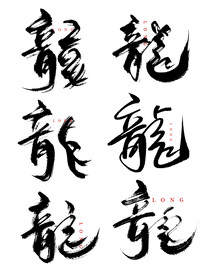 龍 LONG 龍 LONG
龍 LONG 龍 LONG
龍 LONG 龍 LONG